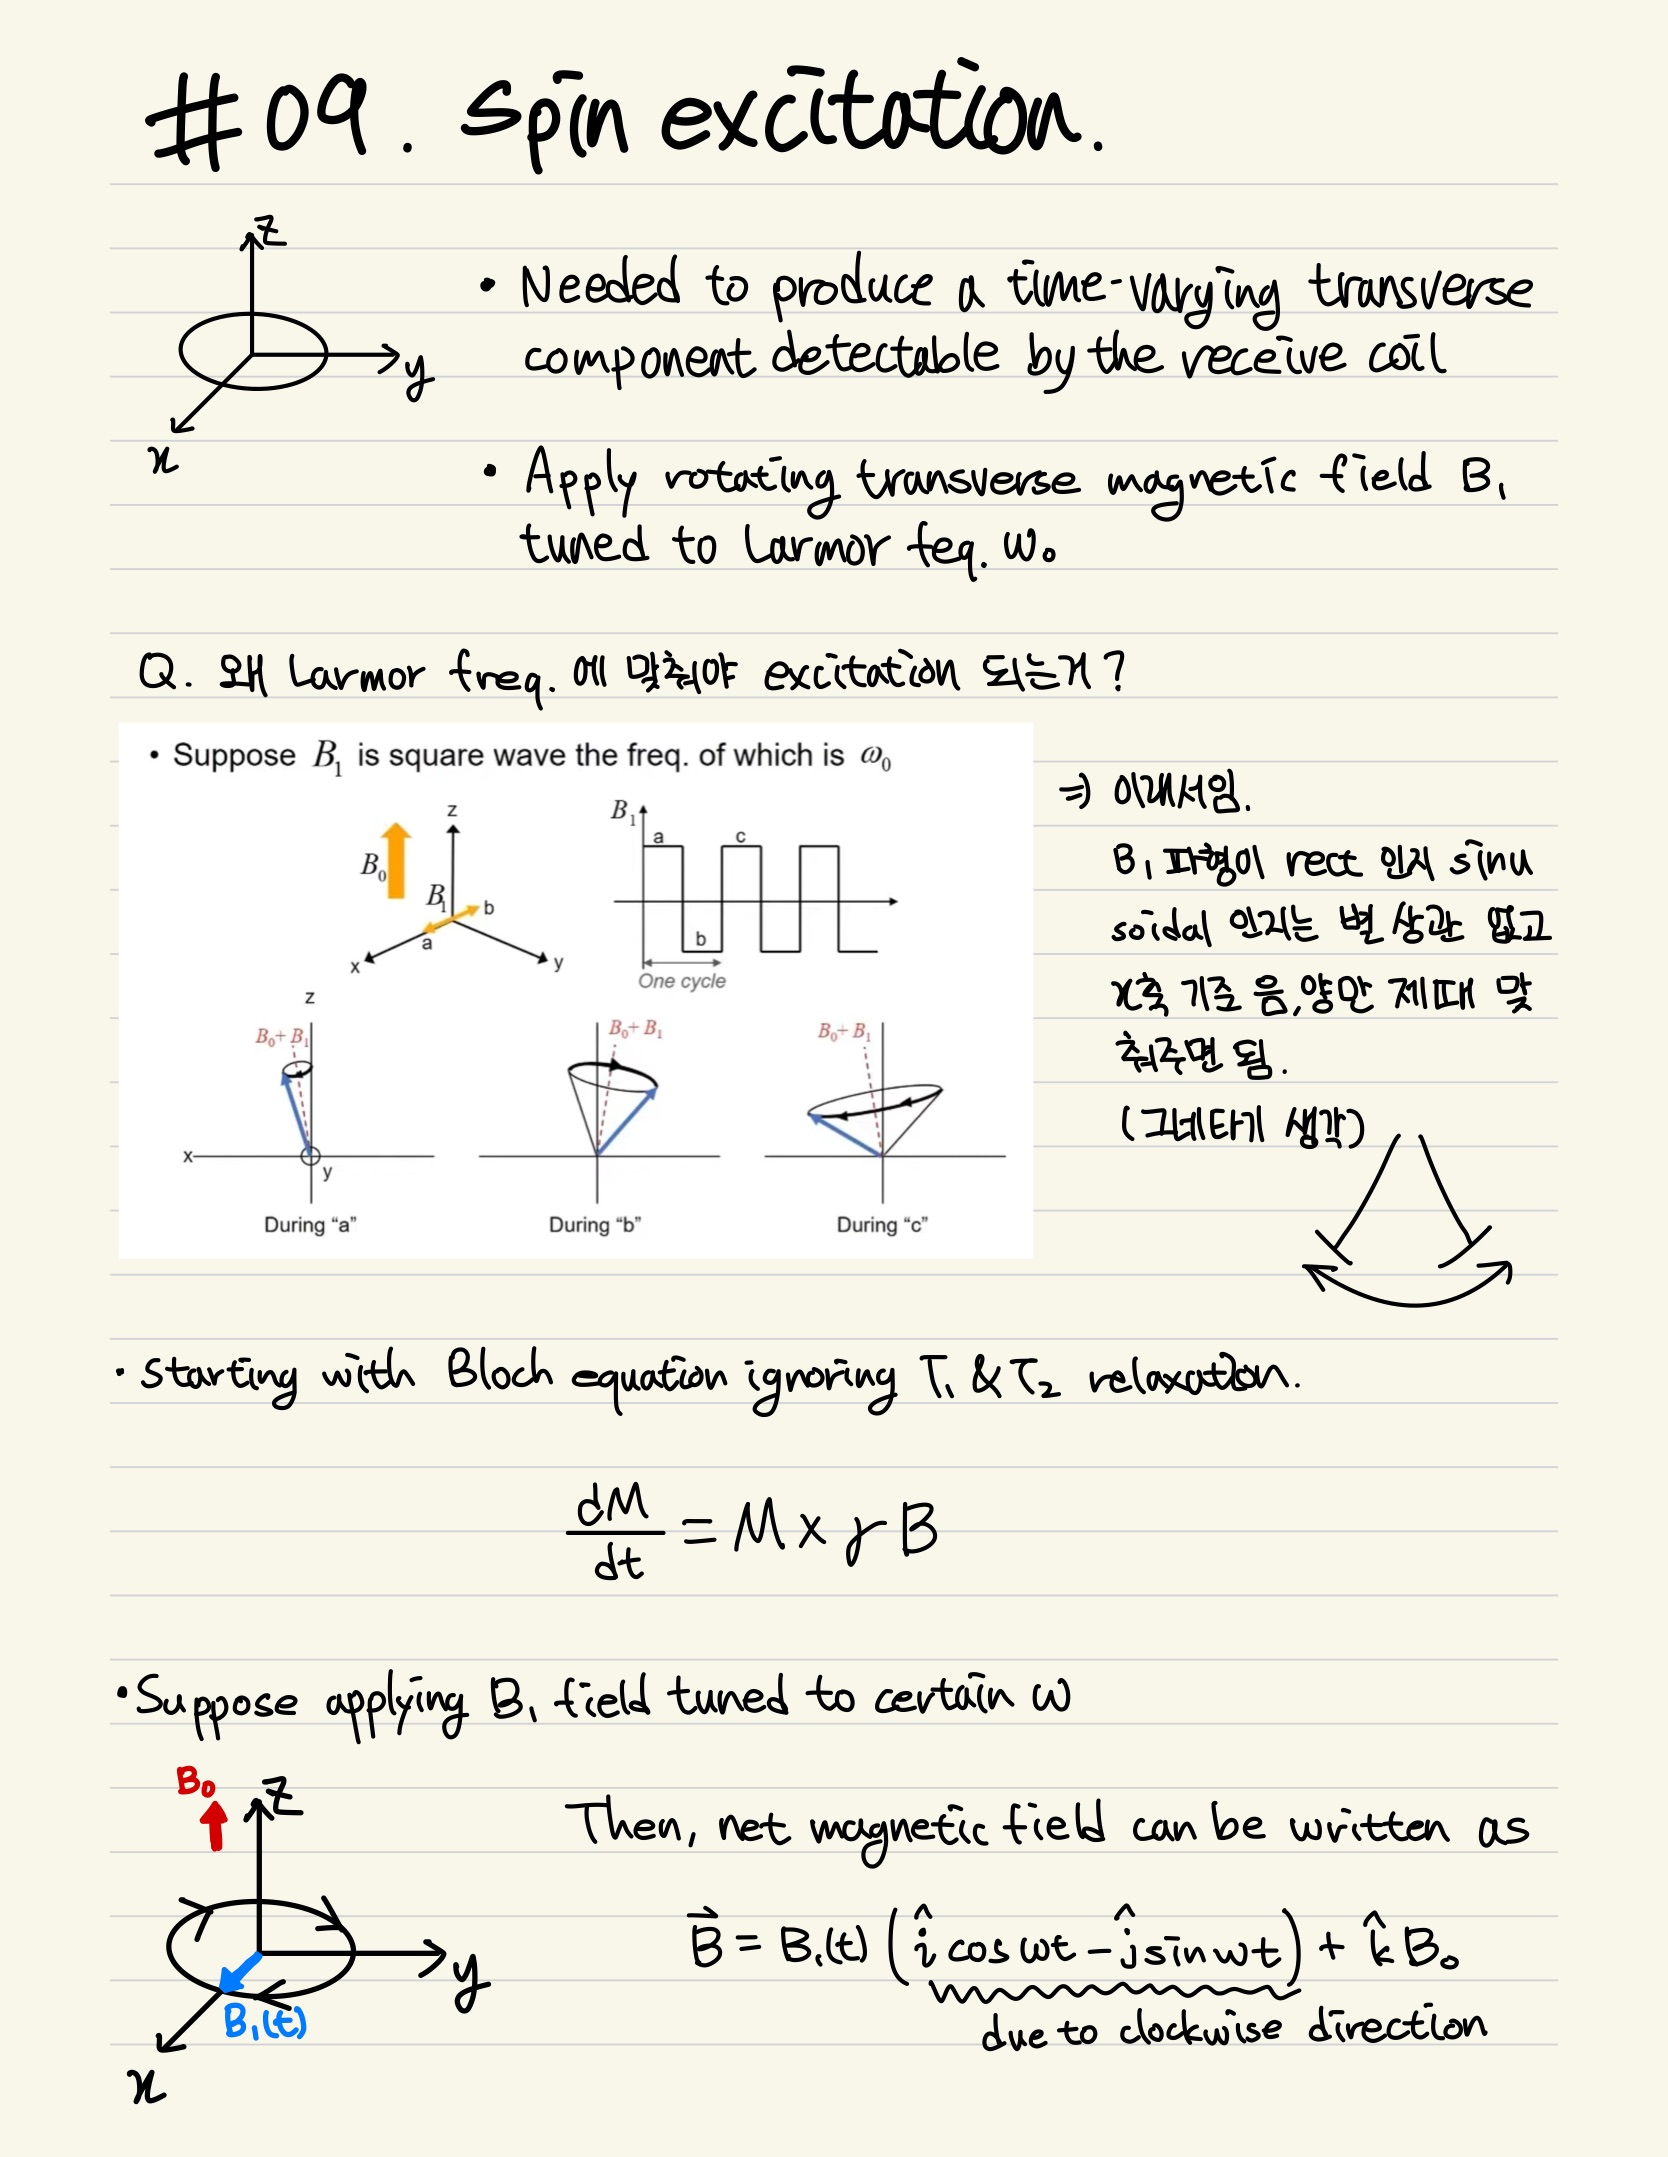 #09. Spin excitation.
z
y
x
• Needed to produce a time-varying transverse
component detectable by the receive coil
• Apply rotating transverse magnetic field B₁
tuned to Larmor feq. ω₀
Q. 왜 Larmor freq. 에 맞춰야 excitation 되는거?
• Suppose B₁ is square wave the freq. of which is ω₀
z
B₀
B₁
b
a
x
y
B₁
a
c
b
One cycle
z
B₀+ B₁
x
y
During “a”
B₀+ B₁
During “b”
B₀+ B₁
During “c”
⇒ 이래서임.
B₁ 파형이 rect 인지 sinu
soidal 인지는 별 상관 없고
x축 기준 음,양만 제때 맞
춰주면 됨.
(그네타기 생각)
· Starting with Bloch equation ignoring T₁ & T₂ relaxation.
dM/dt = M × γB
· Suppose applying B₁ field tuned to certain ω
B₀
z
y
B₁(t)
x
Then, net magnetic field can be written as
B⃗ = B₁(t) (î cos ωt − ĵ sin ωt) + k̂ B₀
due to clockwise direction